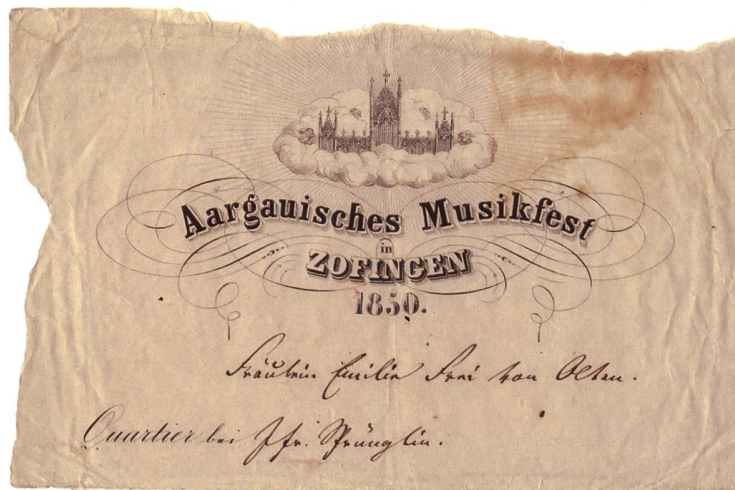 Aargauisches Musikfest
in
ZOFINGEN
1850.
Fräulein Emilie Frei von Olten.
Quartier bei Jfr. Sprünglin.